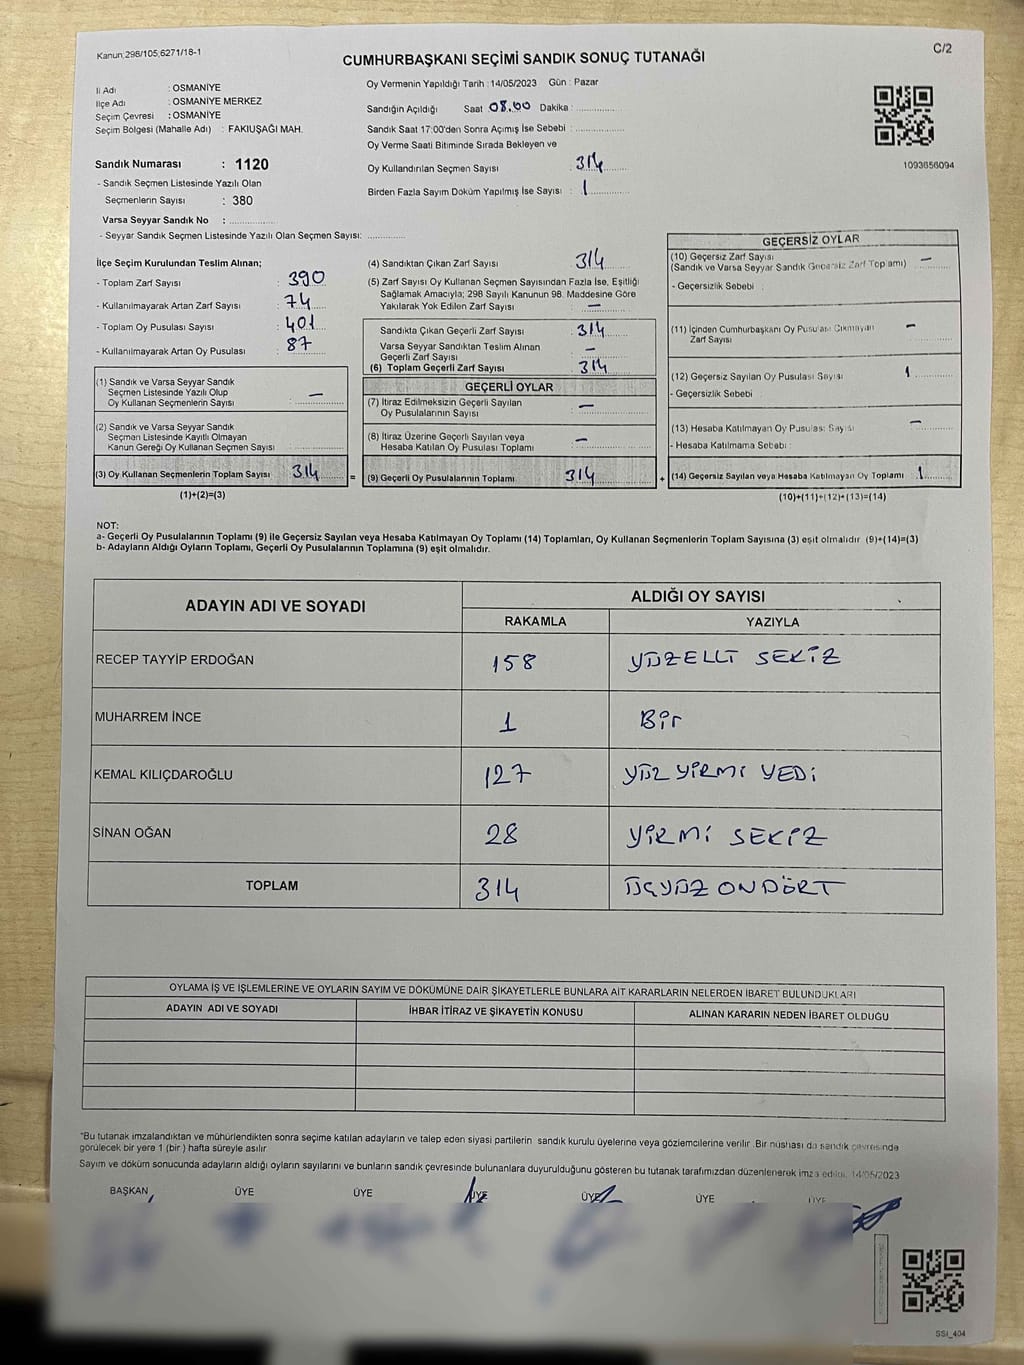 Kanun:298/105,6271/18-1
C/2
CUMHURBAŞKANI SEÇİMİ SANDIK SONUÇ TUTANAĞI
İli Adı : OSMANİYE
İlçe Adı : OSMANİYE MERKEZ
Seçim Çevresi : OSMANİYE
Seçim Bölgesi (Mahalle Adı) : FAKIUŞAĞI MAH.
Sandık Numarası : 1120
- Sandık Seçmen Listesinde Yazılı Olan
Seçmenlerin Sayısı : 380
Varsa Seyyar Sandık No : ..............
- Seyyar Sandık Seçmen Listesinde Yazılı Olan Seçmen Sayısı: ............
Oy Vermenin Yapıldığı Tarih : 14/05/2023 Gün : Pazar
Sandığın Açıldığı Saat 08.00 Dakika : ............
Sandık Saat 17:00'den Sonra Açımış İse Sebebi : ...............
Oy Verme Saati Bitiminde Sırada Bekleyen ve
Oy Kullandırılan Seçmen Sayısı 314
Birden Fazla Sayım Döküm Yapılmış İse Sayısı : 1
1093656094
İlçe Seçim Kurulundan Teslim Alınan;
- Toplam Zarf Sayısı : 390
- Kullanılmayarak Artan Zarf Sayısı : 74
- Toplam Oy Pusulası Sayısı : 401
- Kullanılmayarak Artan Oy Pusulası : 87
(1) Sandık ve Varsa Seyyar Sandık
Seçmen Listesinde Yazılı Olup
Oy Kullanan Seçmenlerin Sayısı : —
(2) Sandık ve Varsa Seyyar Sandık
Seçman Listesinde Kayıtlı Olmayan
Kanun Gereği Oy Kullanan Seçmen Sayısı
(3) Oy Kullanan Seçmenlerin Toplam Sayısı 314
(1)+(2)=(3)
=
(4) Sandıktan Çıkan Zarf Sayısı 314
(5) Zarf Sayısı Oy Kullanan Seçmen Sayısından Fazla İse, Eşitliği
Sağlamak Amacıyla; 298 Sayılı Kanunun 98. Maddesine Göre
Yakılarak Yok Edilen Zarf Sayısı : —
Sandıkta Çıkan Geçerli Zarf Sayısı : 314
Varsa Seyyar Sandıktan Teslim Alınan
Geçerli Zarf Sayısı : —
(6) Toplam Geçerli Zarf Sayısı : 314
GEÇERLİ OYLAR
(7) İtiraz Edilmeksizin Geçerli Sayılan
Oy Pusulalarının Sayısı : —
(8) İtiraz Üzerine Geçerli Sayılan veya
Hesaba Katılan Oy Pusulası Toplamı —
(9) Geçerli Oy Pusulalarının Toplamı 314
+
GEÇERSİZ OYLAR
(10) Geçersiz Zarf Sayısı
(Sandık ve Varsa Seyyar Sandık Geçersiz Zarf Toplamı) —
- Geçersizlik Sebebi :
(11) İçinden Cumhurbaşkanı Oy Pusulası Çıkmayan
Zarf Sayısı —
(12) Geçersiz Sayılan Oy Pusulası Sayısı 1
- Geçersizlik Sebebi
(13) Hesaba Katılmayan Oy Pusulası Sayısı —
- Hesaba Katılmama Sebebi :
(14) Geçersiz Sayılan veya Hesaba Katılmayan Oy Toplamı 1
(10)+(11)+(12)+(13)=(14)
NOT:
a- Geçerli Oy Pusulalarının Toplamı (9) ile Geçersiz Sayılan veya Hesaba Katılmayan Oy Toplamı (14) Toplamları, Oy Kullanan Seçmenlerin Toplam Sayısına (3) eşit olmalıdır (9)+(14)=(3)
b- Adayların Aldığı Oyların Toplamı, Geçerli Oy Pusulalarının Toplamına (9) eşit olmalıdır.
ADAYIN ADI VE SOYADI
ALDIĞI OY SAYISI
RAKAMLA YAZIYLA
RECEP TAYYİP ERDOĞAN 158 YÜZELLİ SEKİZ
MUHARREM İNCE 1 Bir
KEMAL KILIÇDAROĞLU 127 YÜZ YİRMİ YEDİ
SİNAN OĞAN 28 YİRMİ SEKİZ
TOPLAM 314 ÜÇYÜZ ONDÖRT
OYLAMA İŞ VE İŞLEMLERİNE VE OYLARIN SAYIM VE DÖKÜMÜNE DAİR ŞİKAYETLERLE BUNLARA AİT KARARLARIN NELERDEN İBARET BULUNDUKLARI
ADAYIN ADI VE SOYADI İHBAR İTİRAZ VE ŞİKAYETİN KONUSU ALINAN KARARIN NEDEN İBARET OLDUĞU
*Bu tutanak imzalandıktan ve mühürlendikten sonra seçime katılan adayların ve talep eden siyasi partilerin sandık kurulu üyelerine veya gözlemcilerine verilir .Bir nüshası da sandık çevresinde
görülecek bir yere 1 (bir ) hafta süreyle asılır.
Sayım ve döküm sonucunda adayların aldığı oyların sayılarını ve bunların sandık çevresinde bulunanlara duyurulduğunu gösteren bu tutanak tarafımızdan düzenlenerek imza edildi. 14/05/2023
BAŞKAN ÜYE ÜYE ÜYE ÜYE ÜYE ÜYE
SSI_404